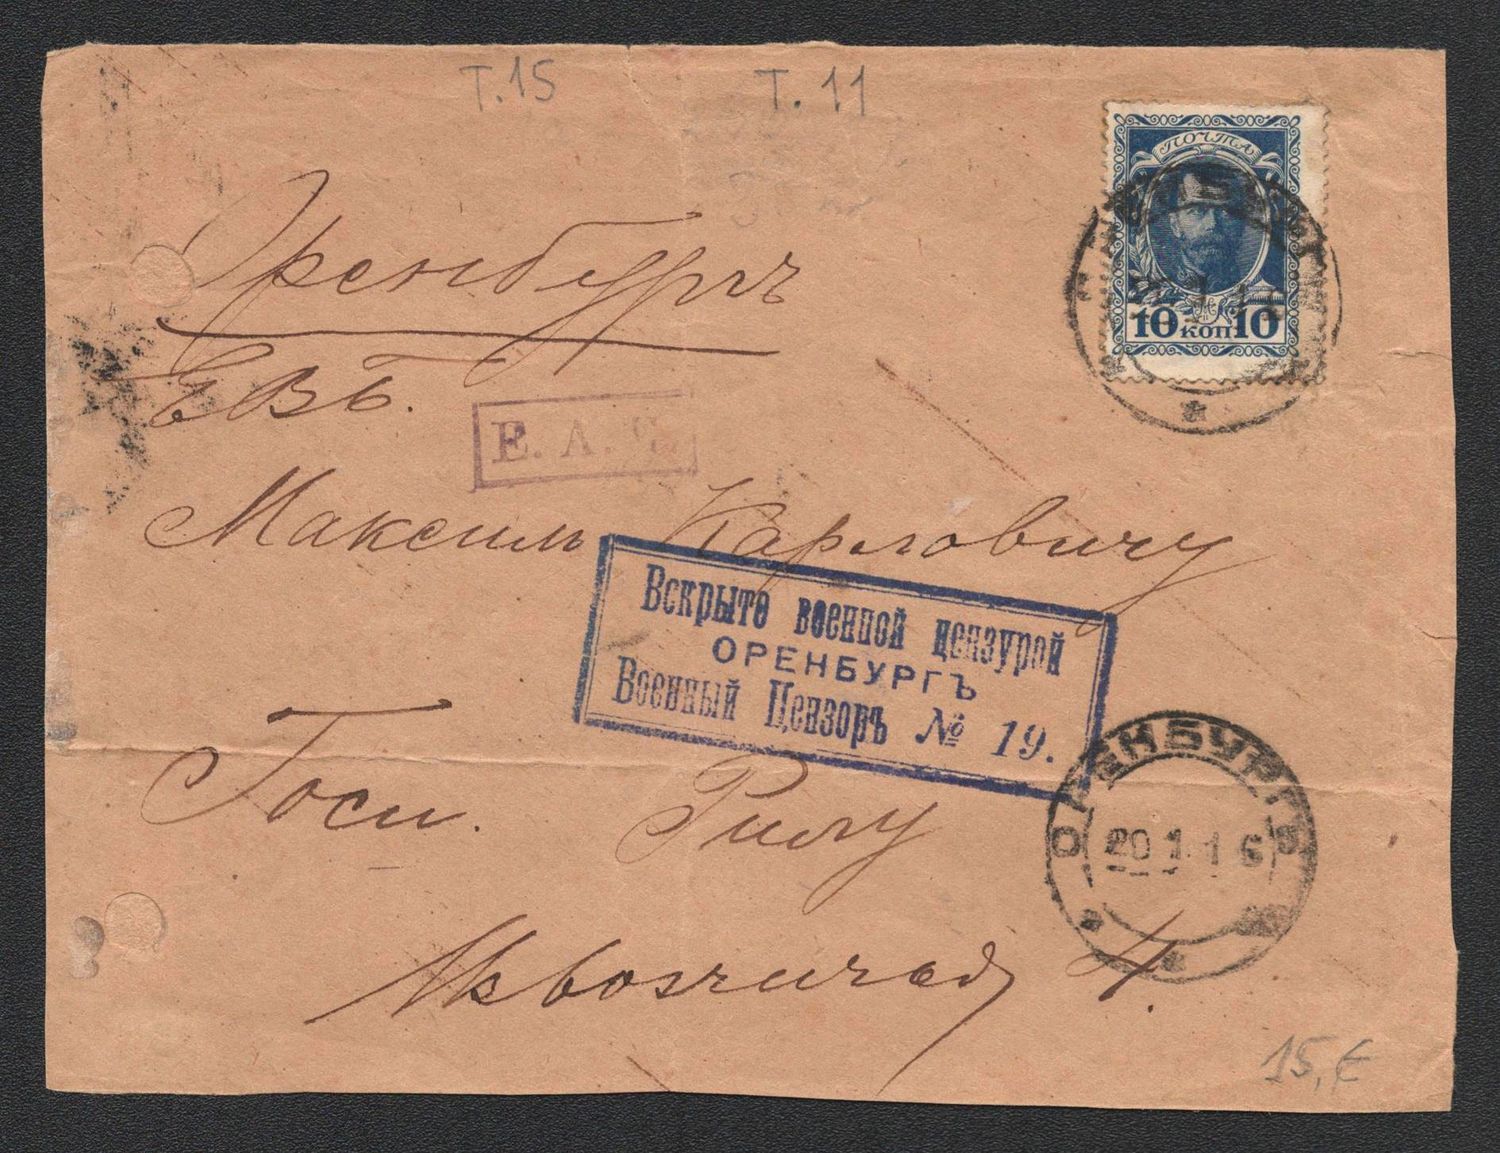 Т.15 Т.11
ПОЧТА
10 КОП 10
Оренбургъ
ЕВБ.
Е. А.
Максиму Карловичу
Вскрыто военной цензурой
ОРЕНБУРГЪ
Военный Цензоръ № 19.
Госп. Рилу
ОРЕНБУРГЪ
20.1.16
15,€